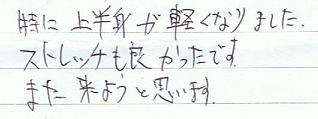 特に上半身が軽くなりました.
ストレッチも良かったです.
また来ようと思います.